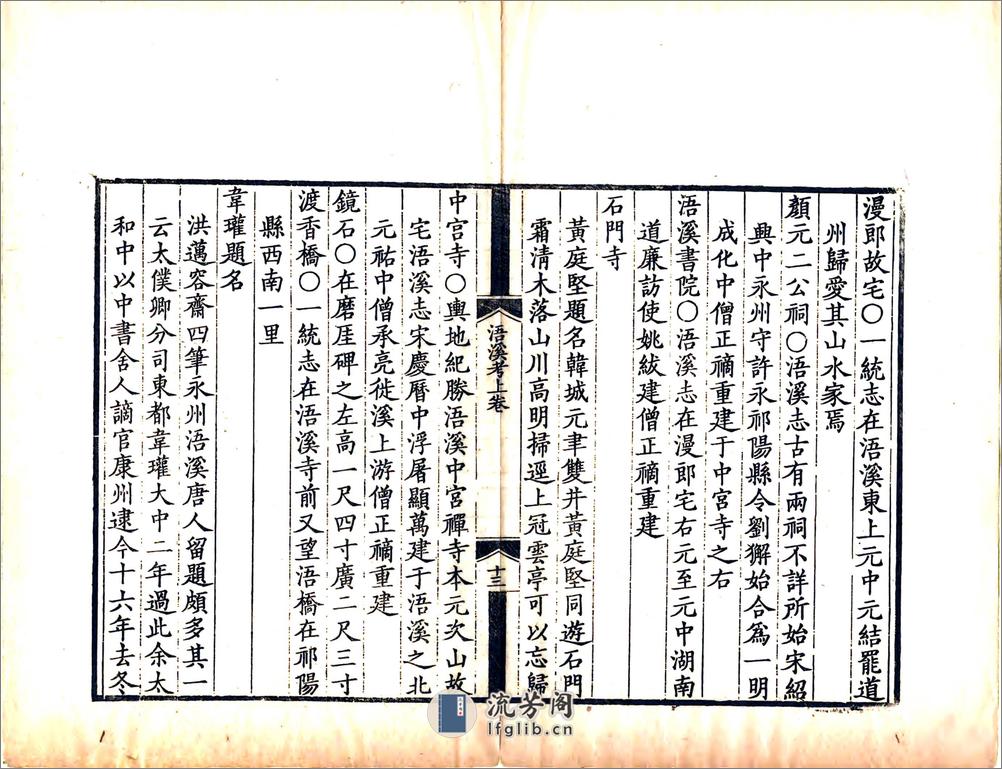 漫郎故宅〇一統志在浯溪東上元中元結罷道
州歸愛其山水家焉
顏元二公祠〇浯溪志古有兩祠不詳所始宋紹
興中永州守許永祁陽縣令劉獬始合爲一明
成化中僧正禰重建于中宮寺之右
浯溪書院〇浯溪志在漫郎宅右元至元中湖南
道廉訪使姚紱建僧正禰重建
石門寺
黃庭堅題名韓城元聿雙井黃庭堅同遊石門
霜清木落山川高明掃逕上冠雲亭可以忘歸
浯溪考上卷
十三
中宮寺〇輿地紀勝浯溪中宮禪寺本元次山故
宅浯溪志宋慶曆中浮屠顯萬建于浯溪之北
元祐中僧承亮徙溪上游僧正禰重建
鏡石〇在磨厓碑之左高一尺四寸廣二尺三寸
渡香橋〇一統志在浯溪寺前又望浯橋在祁陽
縣西南一里
韋瓘題名
洪邁容齋四筆永州浯溪唐人留題頗多其一
云太僕卿分司東都韋瓘大中二年過此余太
和中以中書舍人謫官康州逮今十六年去冬
流芳阁
lfglib.cn